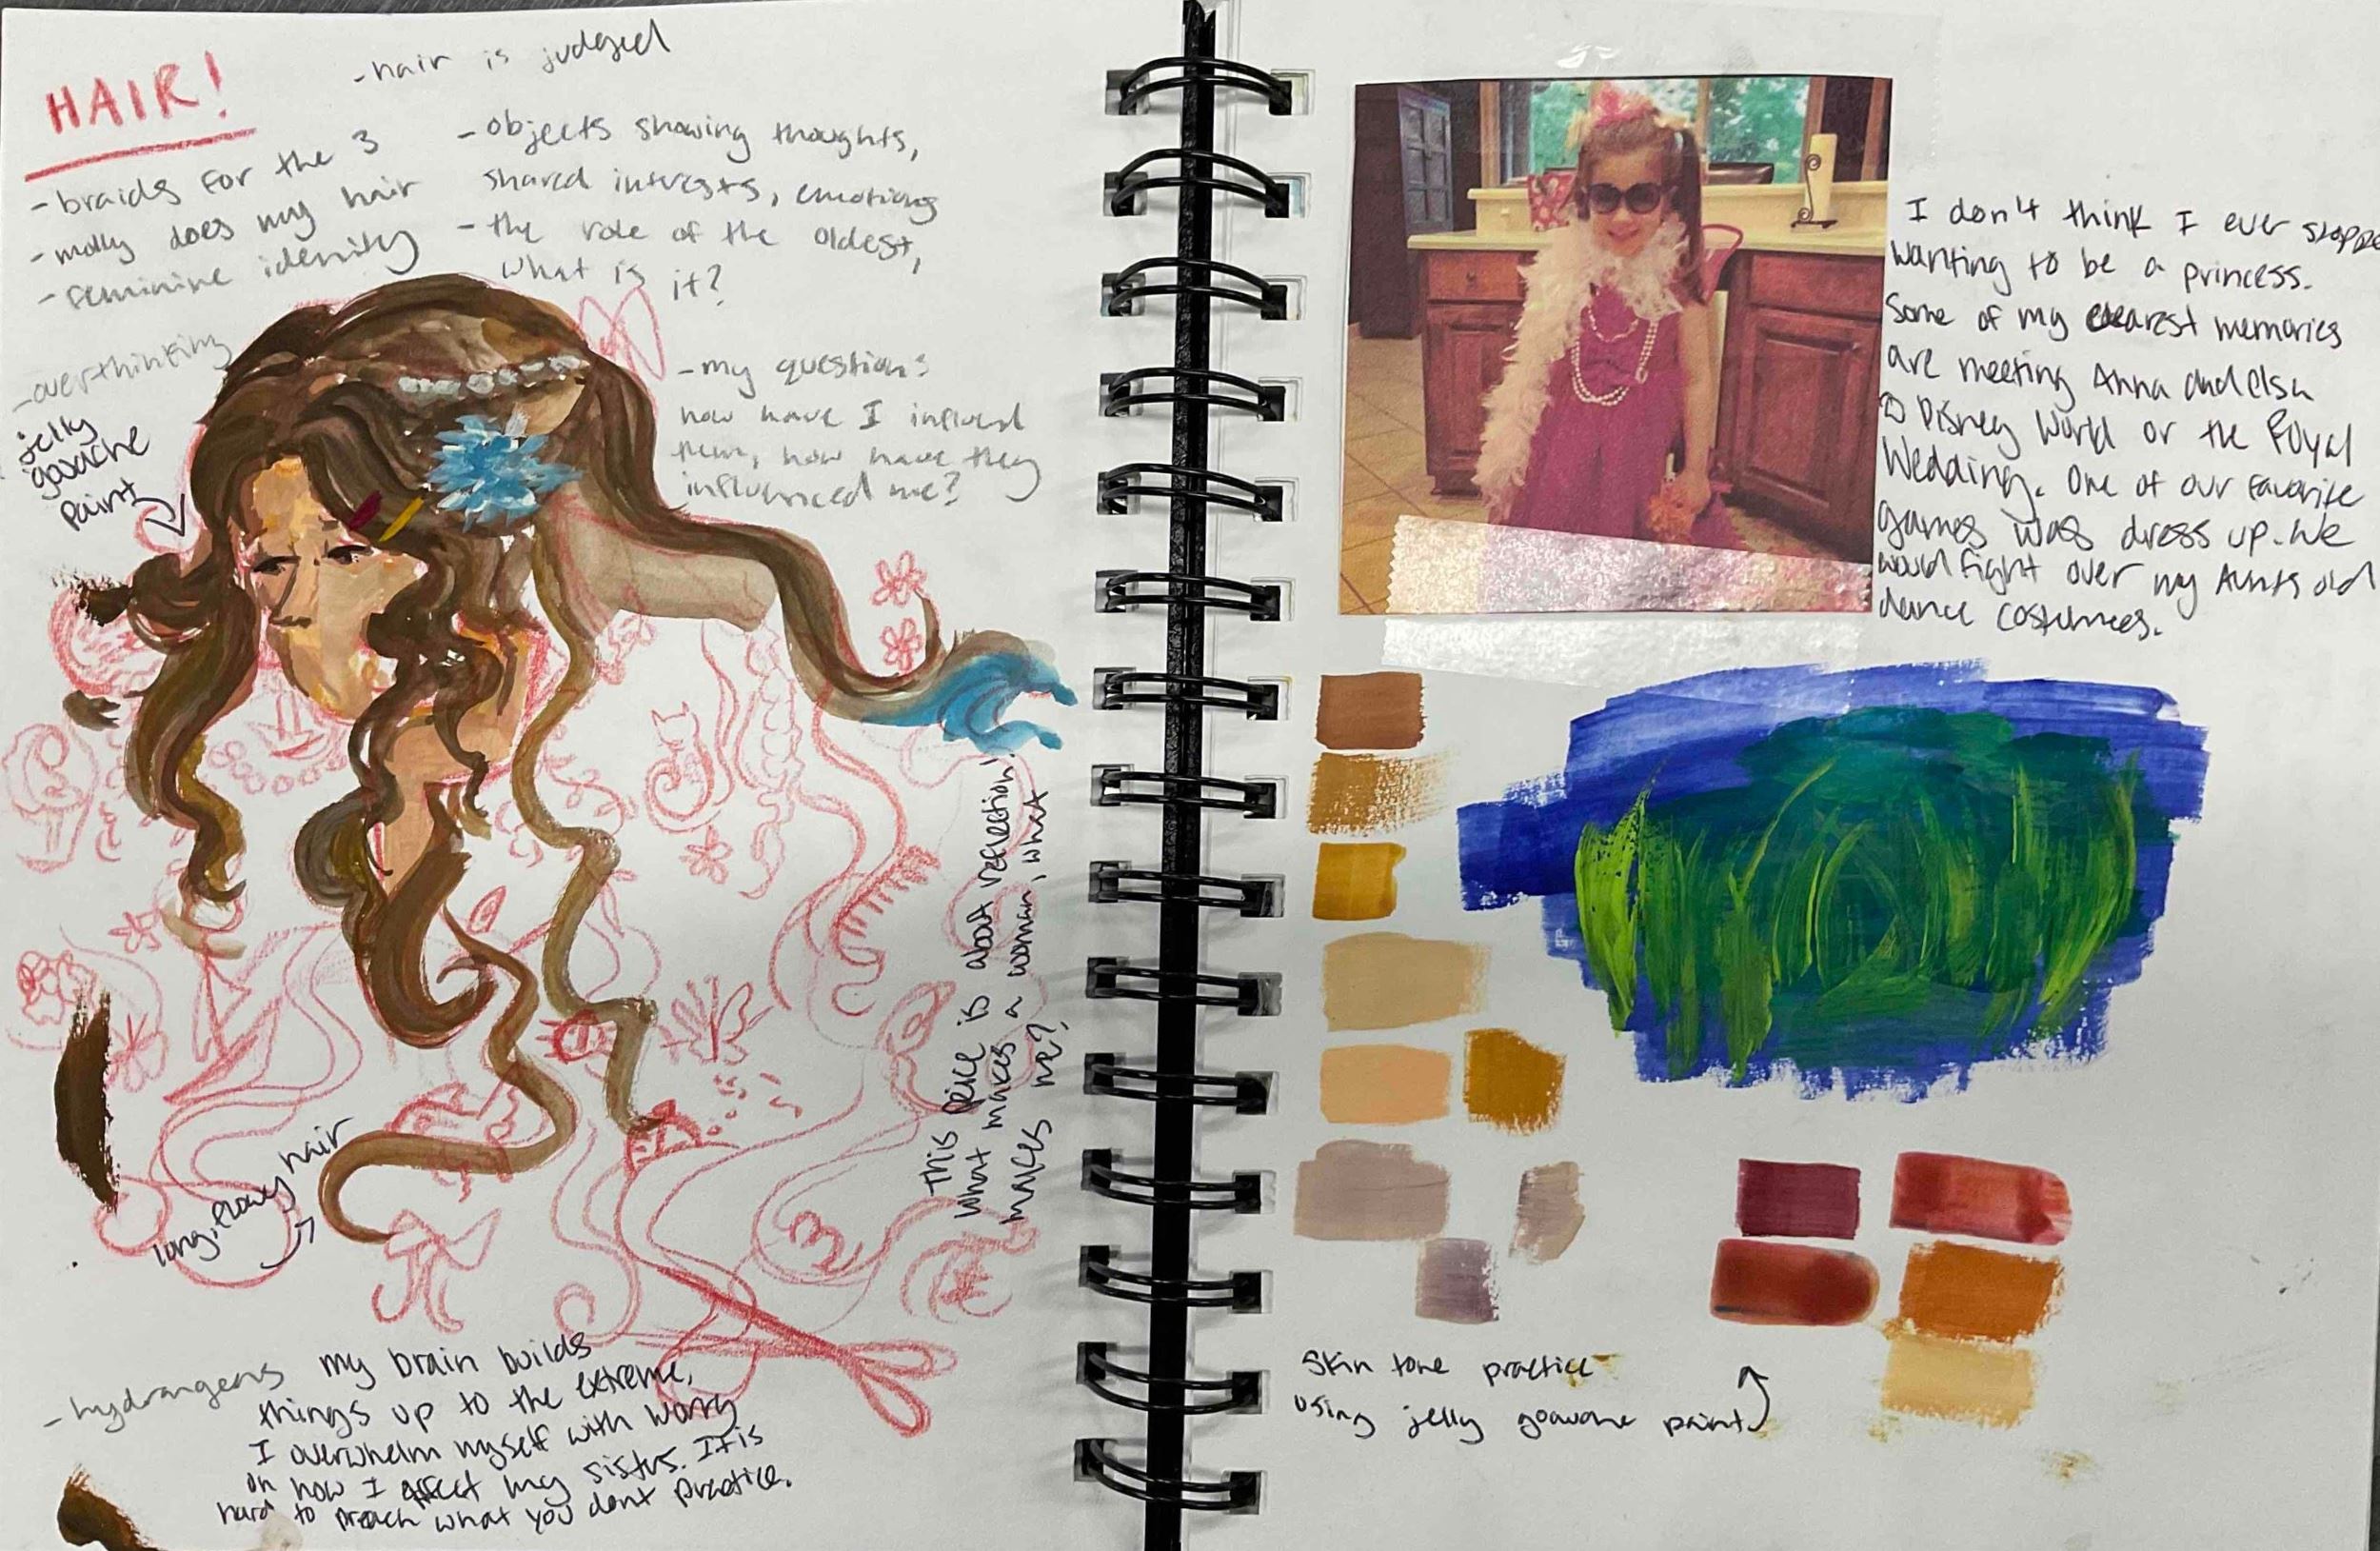 HAIR!
- hair is judged
- braids for the 3
- molly does my hair
- feminine idenity
- overthinking
jelly
gouache
paint
- objects showing thoughts,
shared intrests, emotions
- the role of the oldest,
what is it?
- my question:
how have I influend
them, how have they
influenced me?
This peice is about reflection!
what makes a woman, what
makes me?
long, flowy hair
- hydrangens
my brain builds
things up to the extreme.
I overwhelm myself with worry
on how I affect my sisturs. It is
hard to preach what you dont practice.
I don't think I ever stoppe
wanting to be a princess.
Some of my clearest memories
are meeting Anna and Elsa
@ Disney World or the Royal
Wedding. One of our favorite
games was dress up. We
would fight over my Aunts old
dance costumes.
Skin tone practice
using jelly goauche paint